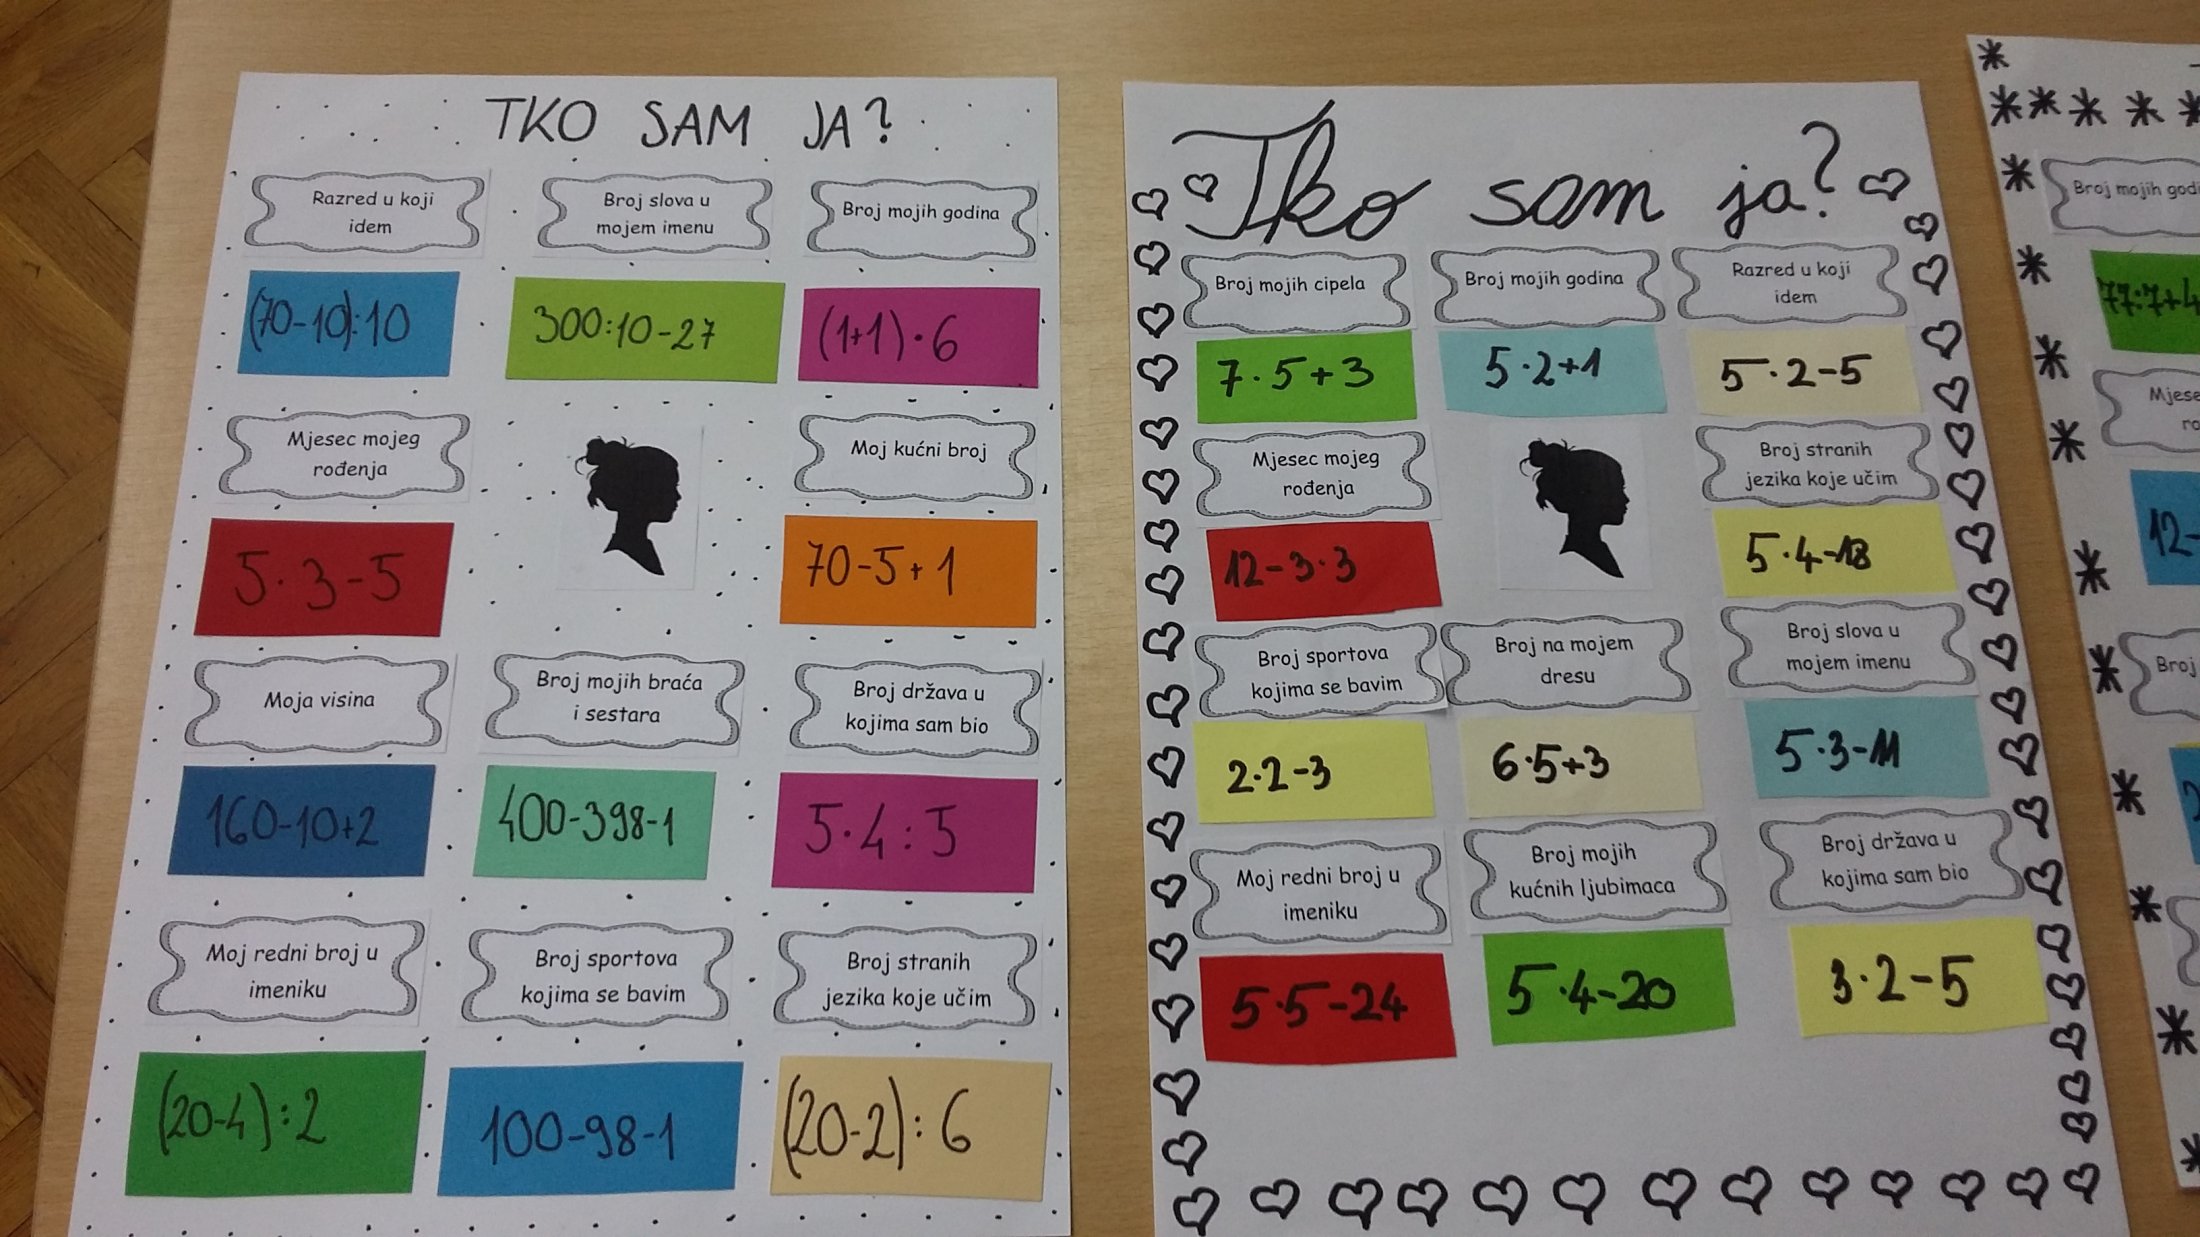 TKO SAM JA?
Razred u koji
idem
(70-10):10
Broj slova u
mojem imenu
300:10-27
Broj mojih godina
(1+1)·6
Mjesec mojeg
rođenja
5·3-5
Moj kućni broj
70-5+1
Moja visina
160-10+2
Broj mojih braća
i sestara
400-398-1
Broj država u
kojima sam bio
5·4:5
Moj redni broj u
imeniku
(20-4):2
Broj sportova
kojima se bavim
100-98-1
Broj stranih
jezika koje učim
(20-2):6
Tko sam ja?
Broj mojih cipela
7·5+3
Broj mojih godina
5·2+1
Razred u koji
idem
5·2-5
Mjesec mojeg
rođenja
12-3·3
Broj stranih
jezika koje učim
5·4-18
Broj sportova
kojima se bavim
2·2-3
Broj na mojem
dresu
6·5+3
Broj slova u
mojem imenu
5·3-11
Moj redni broj u
imeniku
5·5-24
Broj mojih
kućnih ljubimaca
5·4-20
Broj država u
kojima sam bio
3·2-5
Broj mojih godi
77:7+4
Mjese
ro
12-
Broj